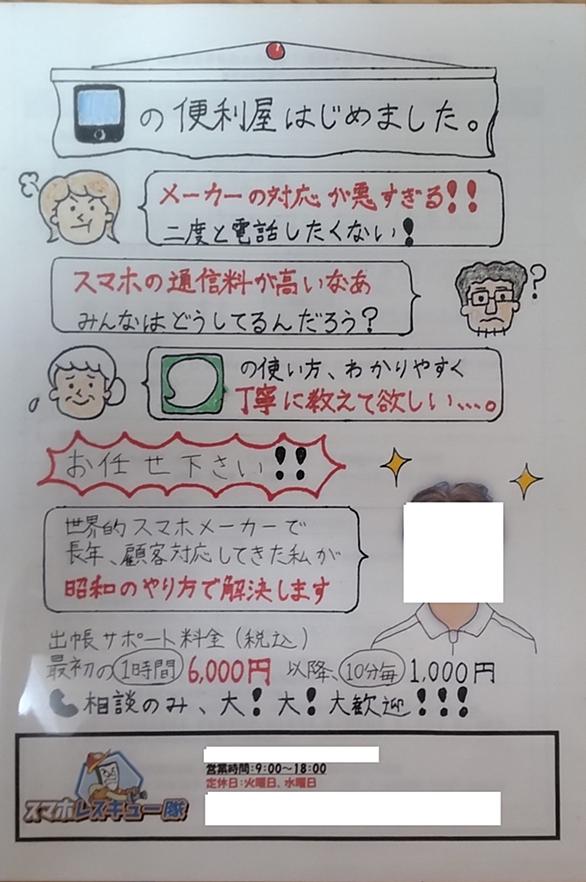 の便利屋はじめました。
メーカーの対応が悪すぎる!!
二度と電話したくない!
スマホの通信料が高いなあ
みんなはどうしてるんだろう?
?
の使い方、わかりやすく
丁寧に教えて欲しい…。
お任せ下さい!!
世界的スマホメーカーで
長年、顧客対応してきた私が
昭和のやり方で解決します
出帳サポート料金(税込)
最初の1時間6,000円 以降、10分毎1,000円
相談のみ、大!大!大歓迎!!!
営業時間:9:00~18:00
定休日:火曜日、水曜日
スマホレスキュー隊